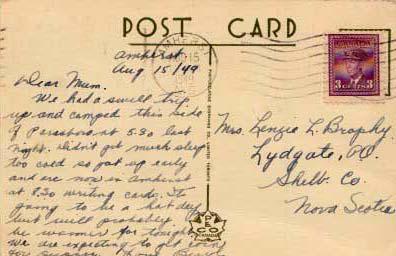 POST CARD
Amherst
Aug 15/49
Dear Mum.
We had a swell trip
up and camped this side
of Parrsboro at 5.30 last
night. Didn't get much sleep
too cold so got up early
and are now in Amherst
at 8.30 writing cards. It's
going to be a hot day
but will probably
be warmer for tonight
we are expecting to get corn
for supper. Love
CANADA
3 CENTS 3
Mrs. Lenzie L. Brophy
Lydgate,
Shelb. Co.
Nova Scotia
PECO
CANADA